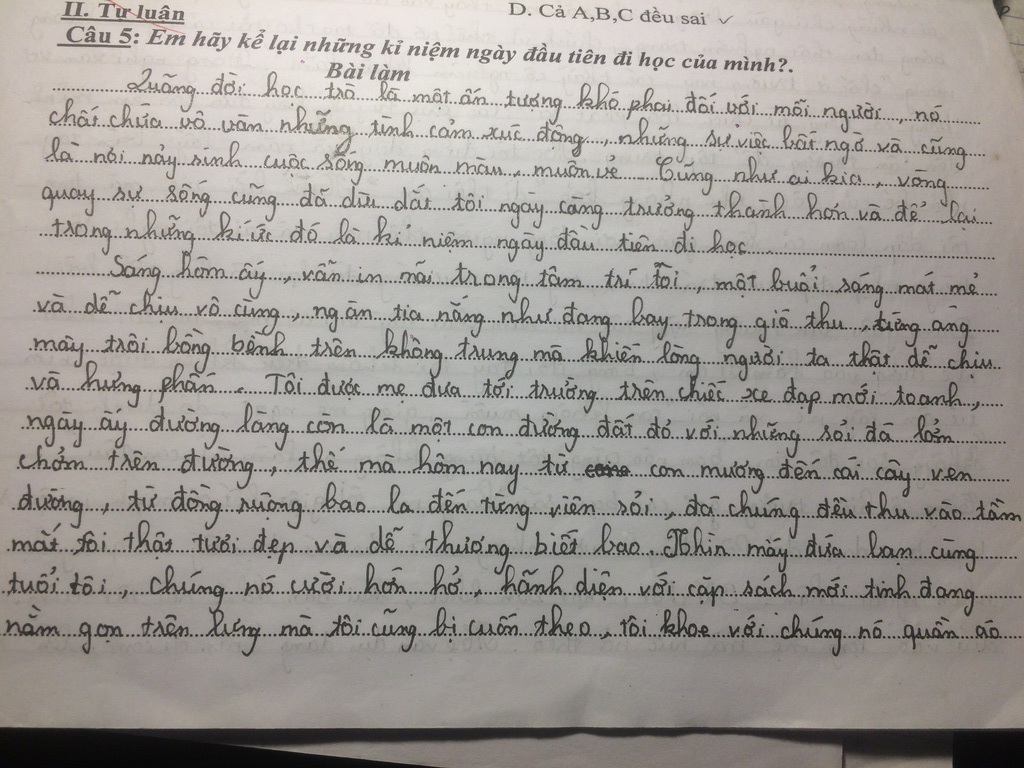 II. Tự luận
D. Cả A,B,C đều sai ✓
Câu 5: Em hãy kể lại những kỉ niệm ngày đầu tiên đi học của mình?.
Bài làm
Quãng đời học trò là một ấn tượng khó phai đối với mỗi người, nó
chất chứa vô vàn những tình cảm xúc động, những sự việc bất ngờ và cũng
là nơi nảy sinh cuộc sống muôn màu, muôn vẻ. Cũng như ai kia, vòng
quay sự sống cũng đã dìu dắt tôi ngày càng trưởng thành hơn và để lại
trong những kí ức đó là kỉ niệm ngày đầu tiên đi học
Sáng hôm ấy, vẫn in mãi trong tâm trí tôi, một buổi sáng mát mẻ
và dễ chịu vô cùng, ngàn tia nắng như đang bay trong gió thu, từng áng
mây trôi bồng bềnh trên không trung mà khiến lòng người ta thật dễ chịu
và hưng phấn. Tôi được mẹ đưa tới trường trên chiếc xe đạp mới toanh,
ngày ấy đường làng còn là một con đường đất đỏ với những sỏi đá lởm
chởm trên đường, thế mà hôm nay từ con mương đến cái cây ven
đường, từ đồng ruộng bao la đến từng viên sỏi, đá chúng đều thu vào tầm
mắt tôi thật tươi đẹp và dễ thương biết bao. Nhìn mấy đứa bạn cùng
tuổi tôi, chúng nó cười hớn hở, hãnh diện với cặp sách mới tinh đang
nằm gọn trên lưng mà tôi cũng bị cuốn theo, tôi khoe với chúng nó quần áo